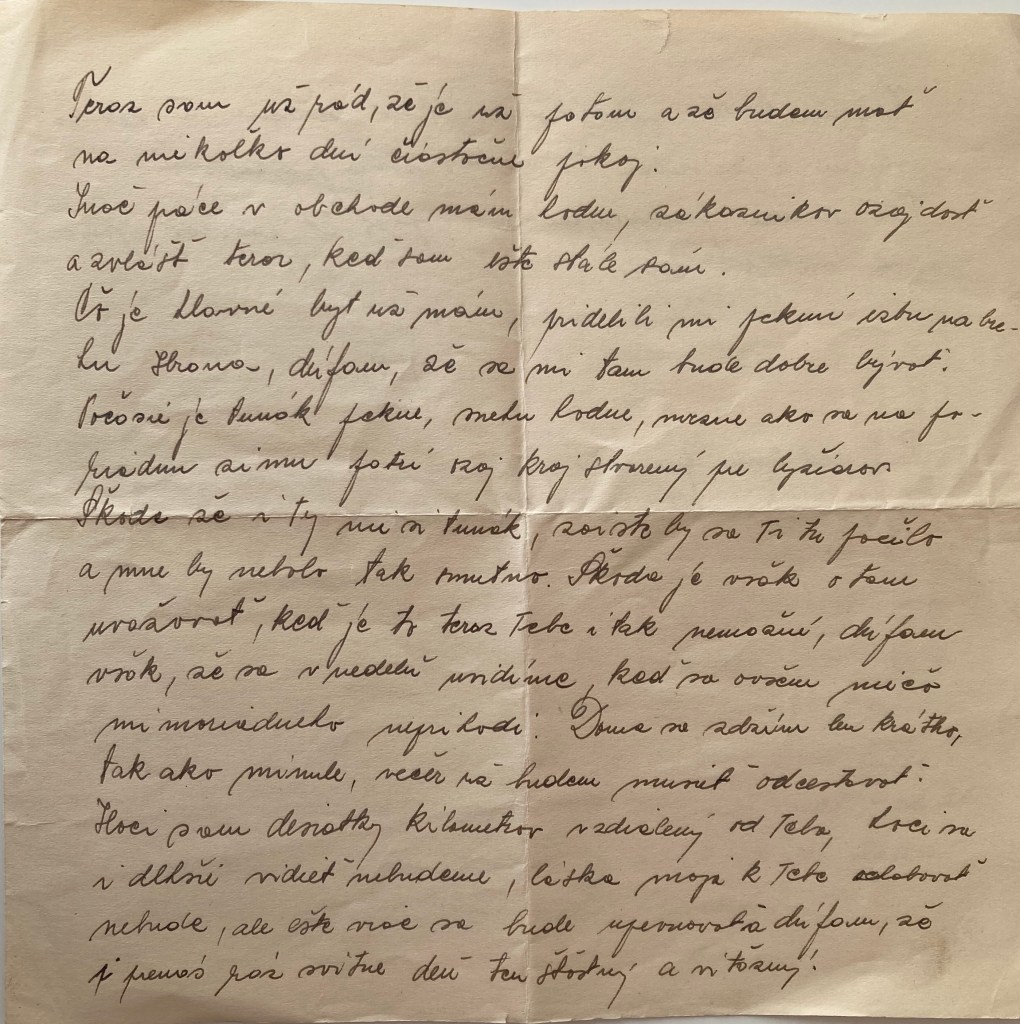 Teraz som už rád, že je už potom a že budem mať
na niekoľko dní čiastočne pokoj.
Ináč práce v obchode mám hodne, zákazníkov ozaj dosť
a zvlášť teraz, keď som ešte stále sám.
Čo je hlavné byt už mám, pridelili mi peknú izbu na bre-
hu Hrona, dúfam, že sa mi tam bude dobre bývať.
Počasie je tunák pekne, snehu hodne, mrzne ako sa na po-
riadnu zimu patrí ozaj kraj stvorený pre lyžiarov
Škoda že i Ty nie si tunák, zaiste by sa Ti tu páčilo
a mne by nebolo tak smutno. Škoda je však o tom
uvažovať, keď je to teraz Tebe i tak nemožné, dúfam
však, že sa v nedeľu uvidíme, keď sa ovšem niečo
mimoriadneho neprihodí. Doma sa zdržím len krátko,
tak ako minule, večer už budem musieť odcestovať.
Hoci som desiatky kilometrov vzdialený od Teba, hoci sa
i dlhšie vidieť nebudeme, láska moja k Tebe slabovať
nebude, ale ešte viac sa bude upevňovať a dúfam, že
i prenás raz svitne deň ten šťastný a víťazný!